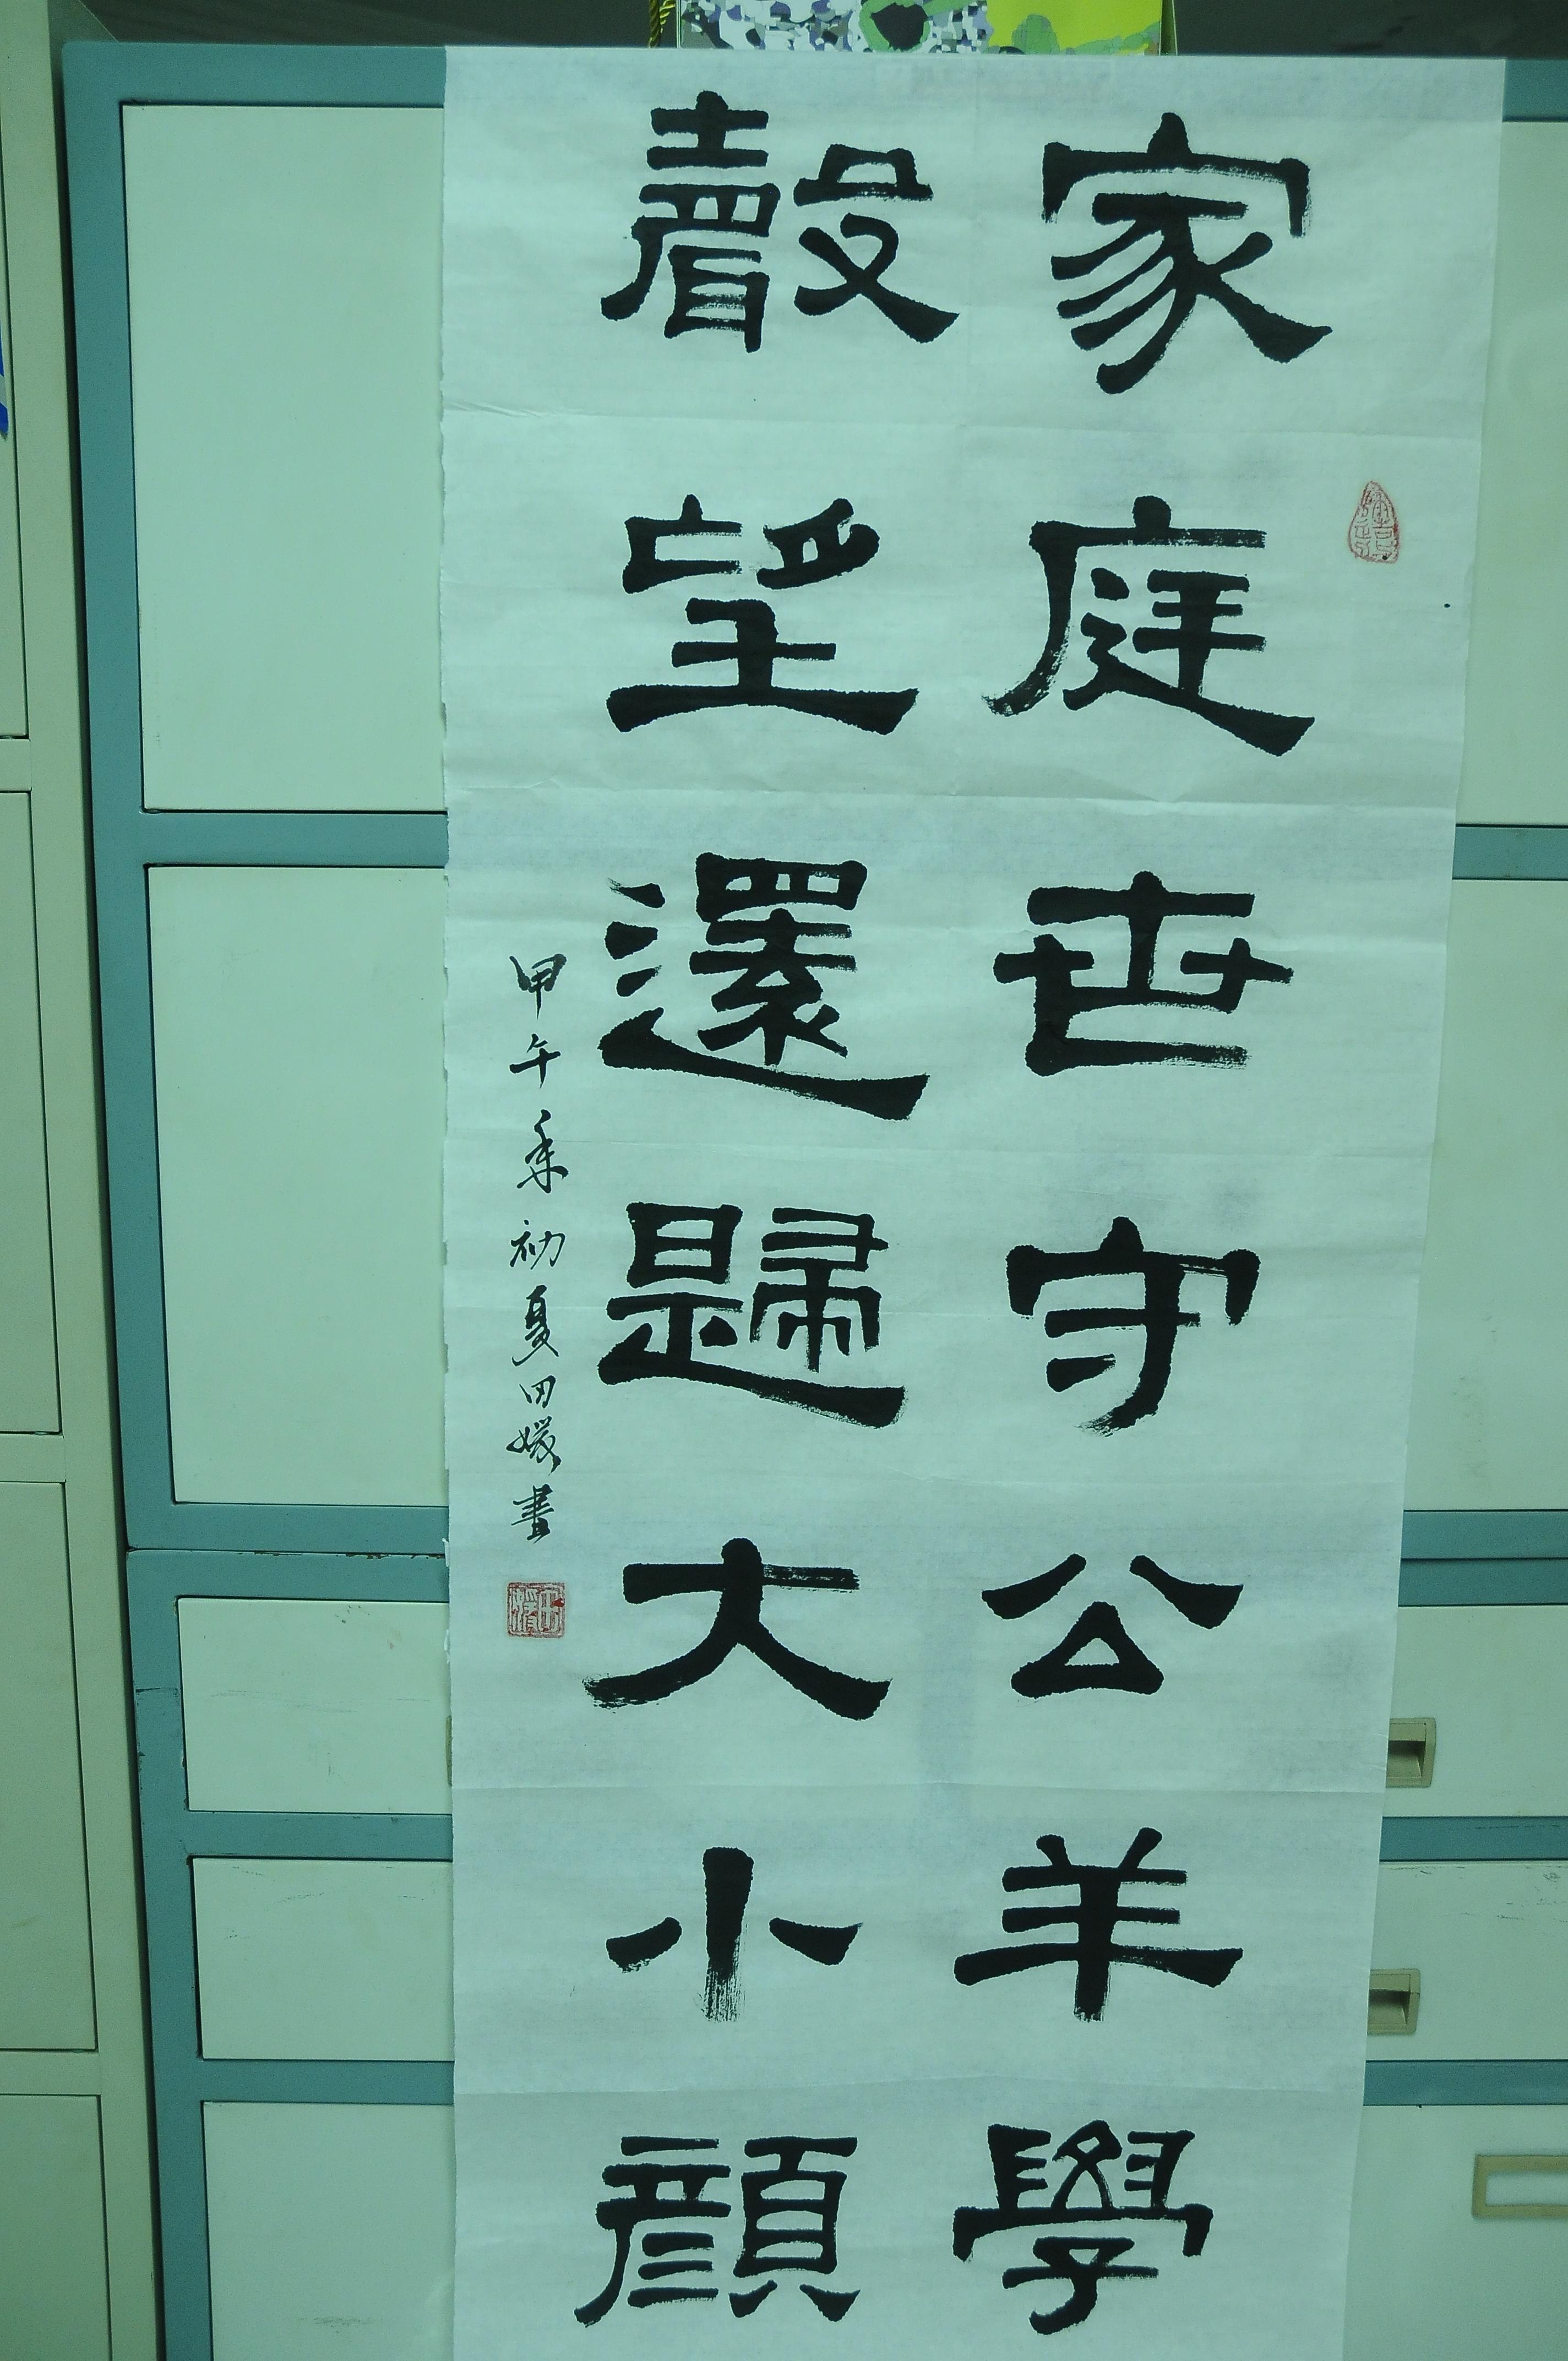 家庭世守公羊學
聲望還歸大小顏
甲午年初夏田媛書